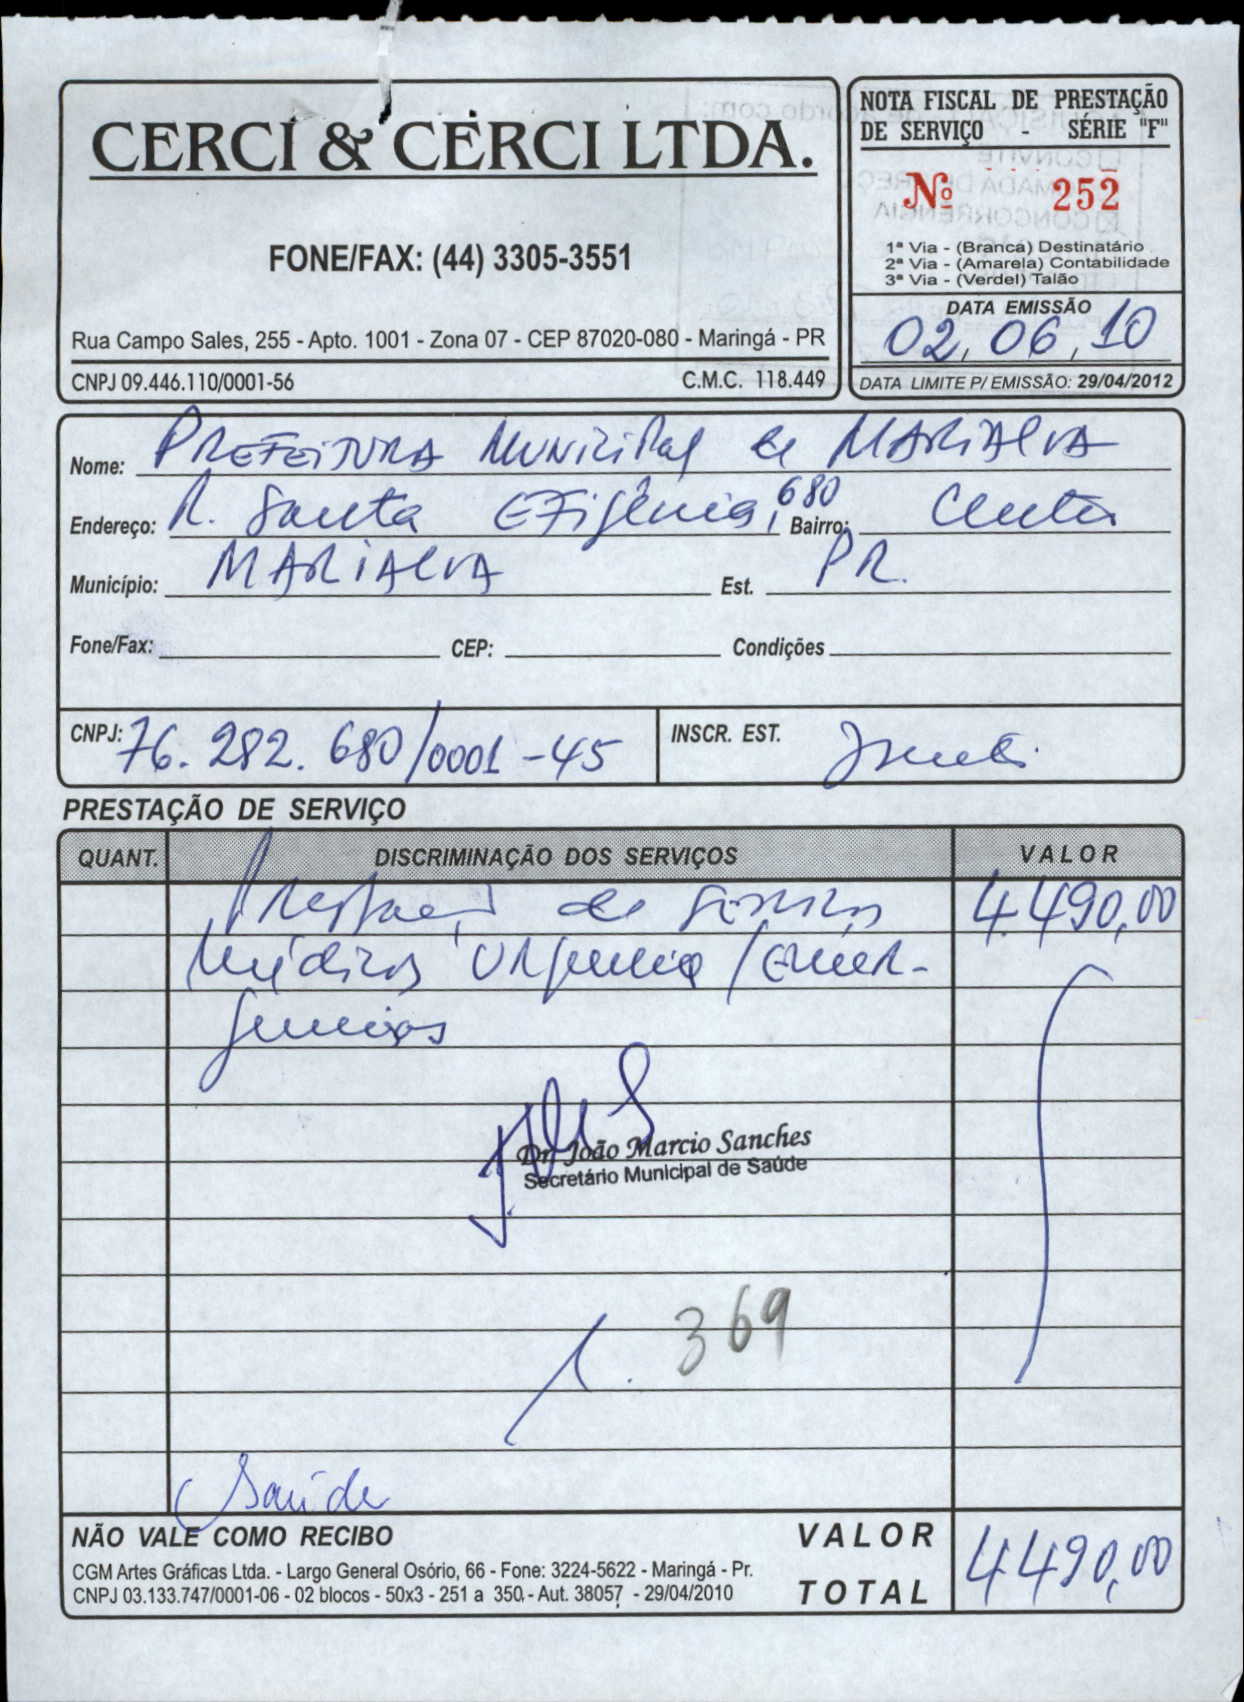 CERCI & CERCI LTDA.
FONE/FAX: (44) 3305-3551
Rua Campo Sales, 255 - Apto. 1001 - Zona 07 - CEP 87020-080 - Maringá - PR
CNPJ 09.446.110/0001-56 C.M.C. 118.449
NOTA FISCAL DE PRESTAÇÃO
DE SERVIÇO - SÉRIE "F"
Nº 252
1ª Via - (Branca) Destinatário
2ª Via - (Amarela) Contabilidade
3ª Via - (Verdel) Talão
DATA EMISSÃO
02, 06, 10
DATA LIMITE P/ EMISSÃO: 29/04/2012
Nome: PREFEITURA MUNICIPAL de MARIALVA
Endereço: R. Santa EFigênia, 680 Bairro: Centro
Município: MARIALVA Est. PR.
Fone/Fax: CEP: Condições
CNPJ: 76.282.680/0001-45 INSCR. EST. Isento
PRESTAÇÃO DE SERVIÇO
QUANT. DISCRIMINAÇÃO DOS SERVIÇOS VALOR
Prestação de serviços 4.490,00
Médicos Urgencia/Emer-
gencias
Dr. João Marcio Sanches
Secretário Municipal de Saúde
369
Saúde
NÃO VALE COMO RECIBO
CGM Artes Gráficas Ltda. - Largo General Osório, 66 - Fone: 3224-5622 - Maringá - Pr.
CNPJ 03.133.747/0001-06 - 02 blocos - 50x3 - 251 a 350 - Aut. 38057 - 29/04/2010
VALOR
TOTAL 4490,00